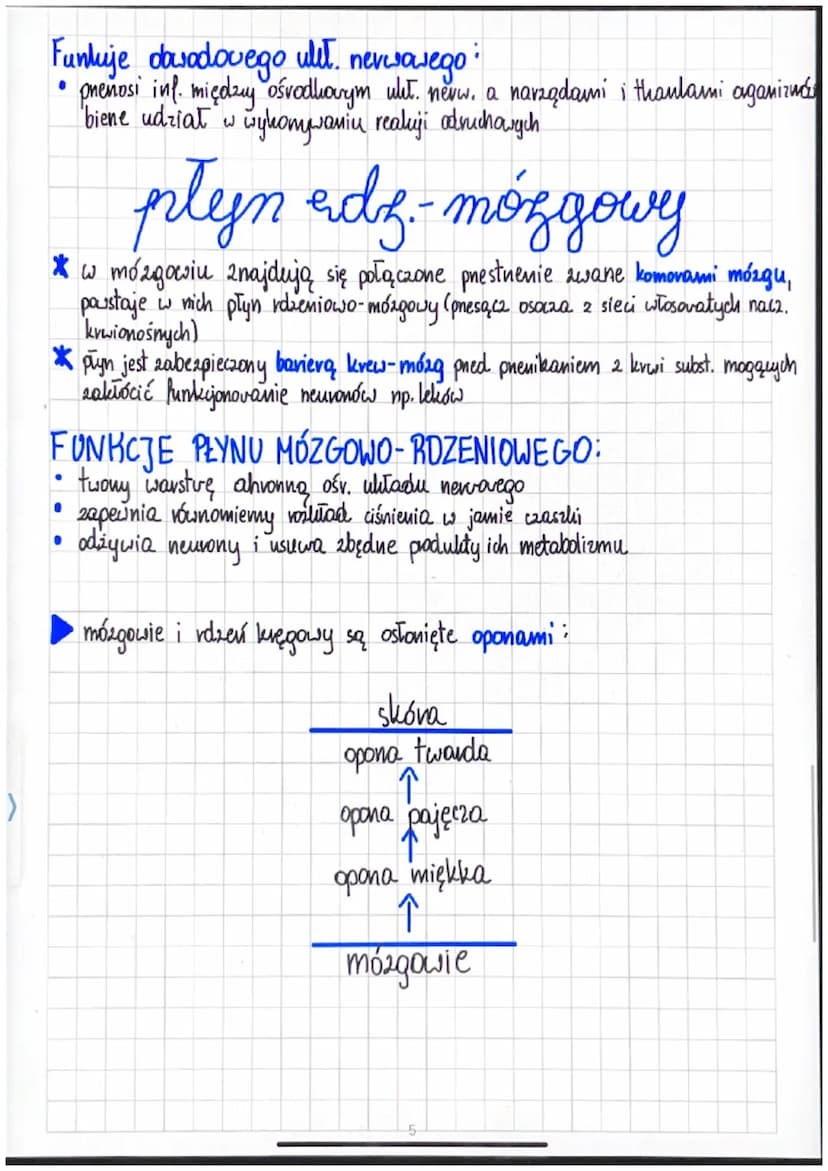 Funkcje obwodowego ukł. nerwowego:
• przenosi inf. między ośrodkowym ukł. nerw. a narządami i tkankami organizmów
bierze udział w wykonywaniu reakcji odruchowych
płyn rdz.-mózgowy
* w mózgowiu znajdują się połączone przestrzenie zwane komorami mózgu,
powstaje w nich płyn rdzeniowo-mózgowy (przesącz osocza z sieci włosowatych nacz.
krwionośnych)
* płyn jest zabezpieczony barierą krew-mózg przed przenikaniem z krwi subst. mogących
zakłócić funkcjonowanie neuronów np. leków
FUNKCJE PŁYNU MÓZGOWO-RDZENIOWEGO:
• tworzy warstwę ochronną ośr. układu nerwowego
• zapewnia równomierny rozkład ciśnienia w jamie czaszki
• odżywia neurony i usuwa zbędne produkty ich metabolizmu
▶ mózgowie i rdzeń kręgowy są osłonięte oponami:
skóra
opona twarda
↑
opona pajęcza
↑
opona miękka
↑
mózgowie
5